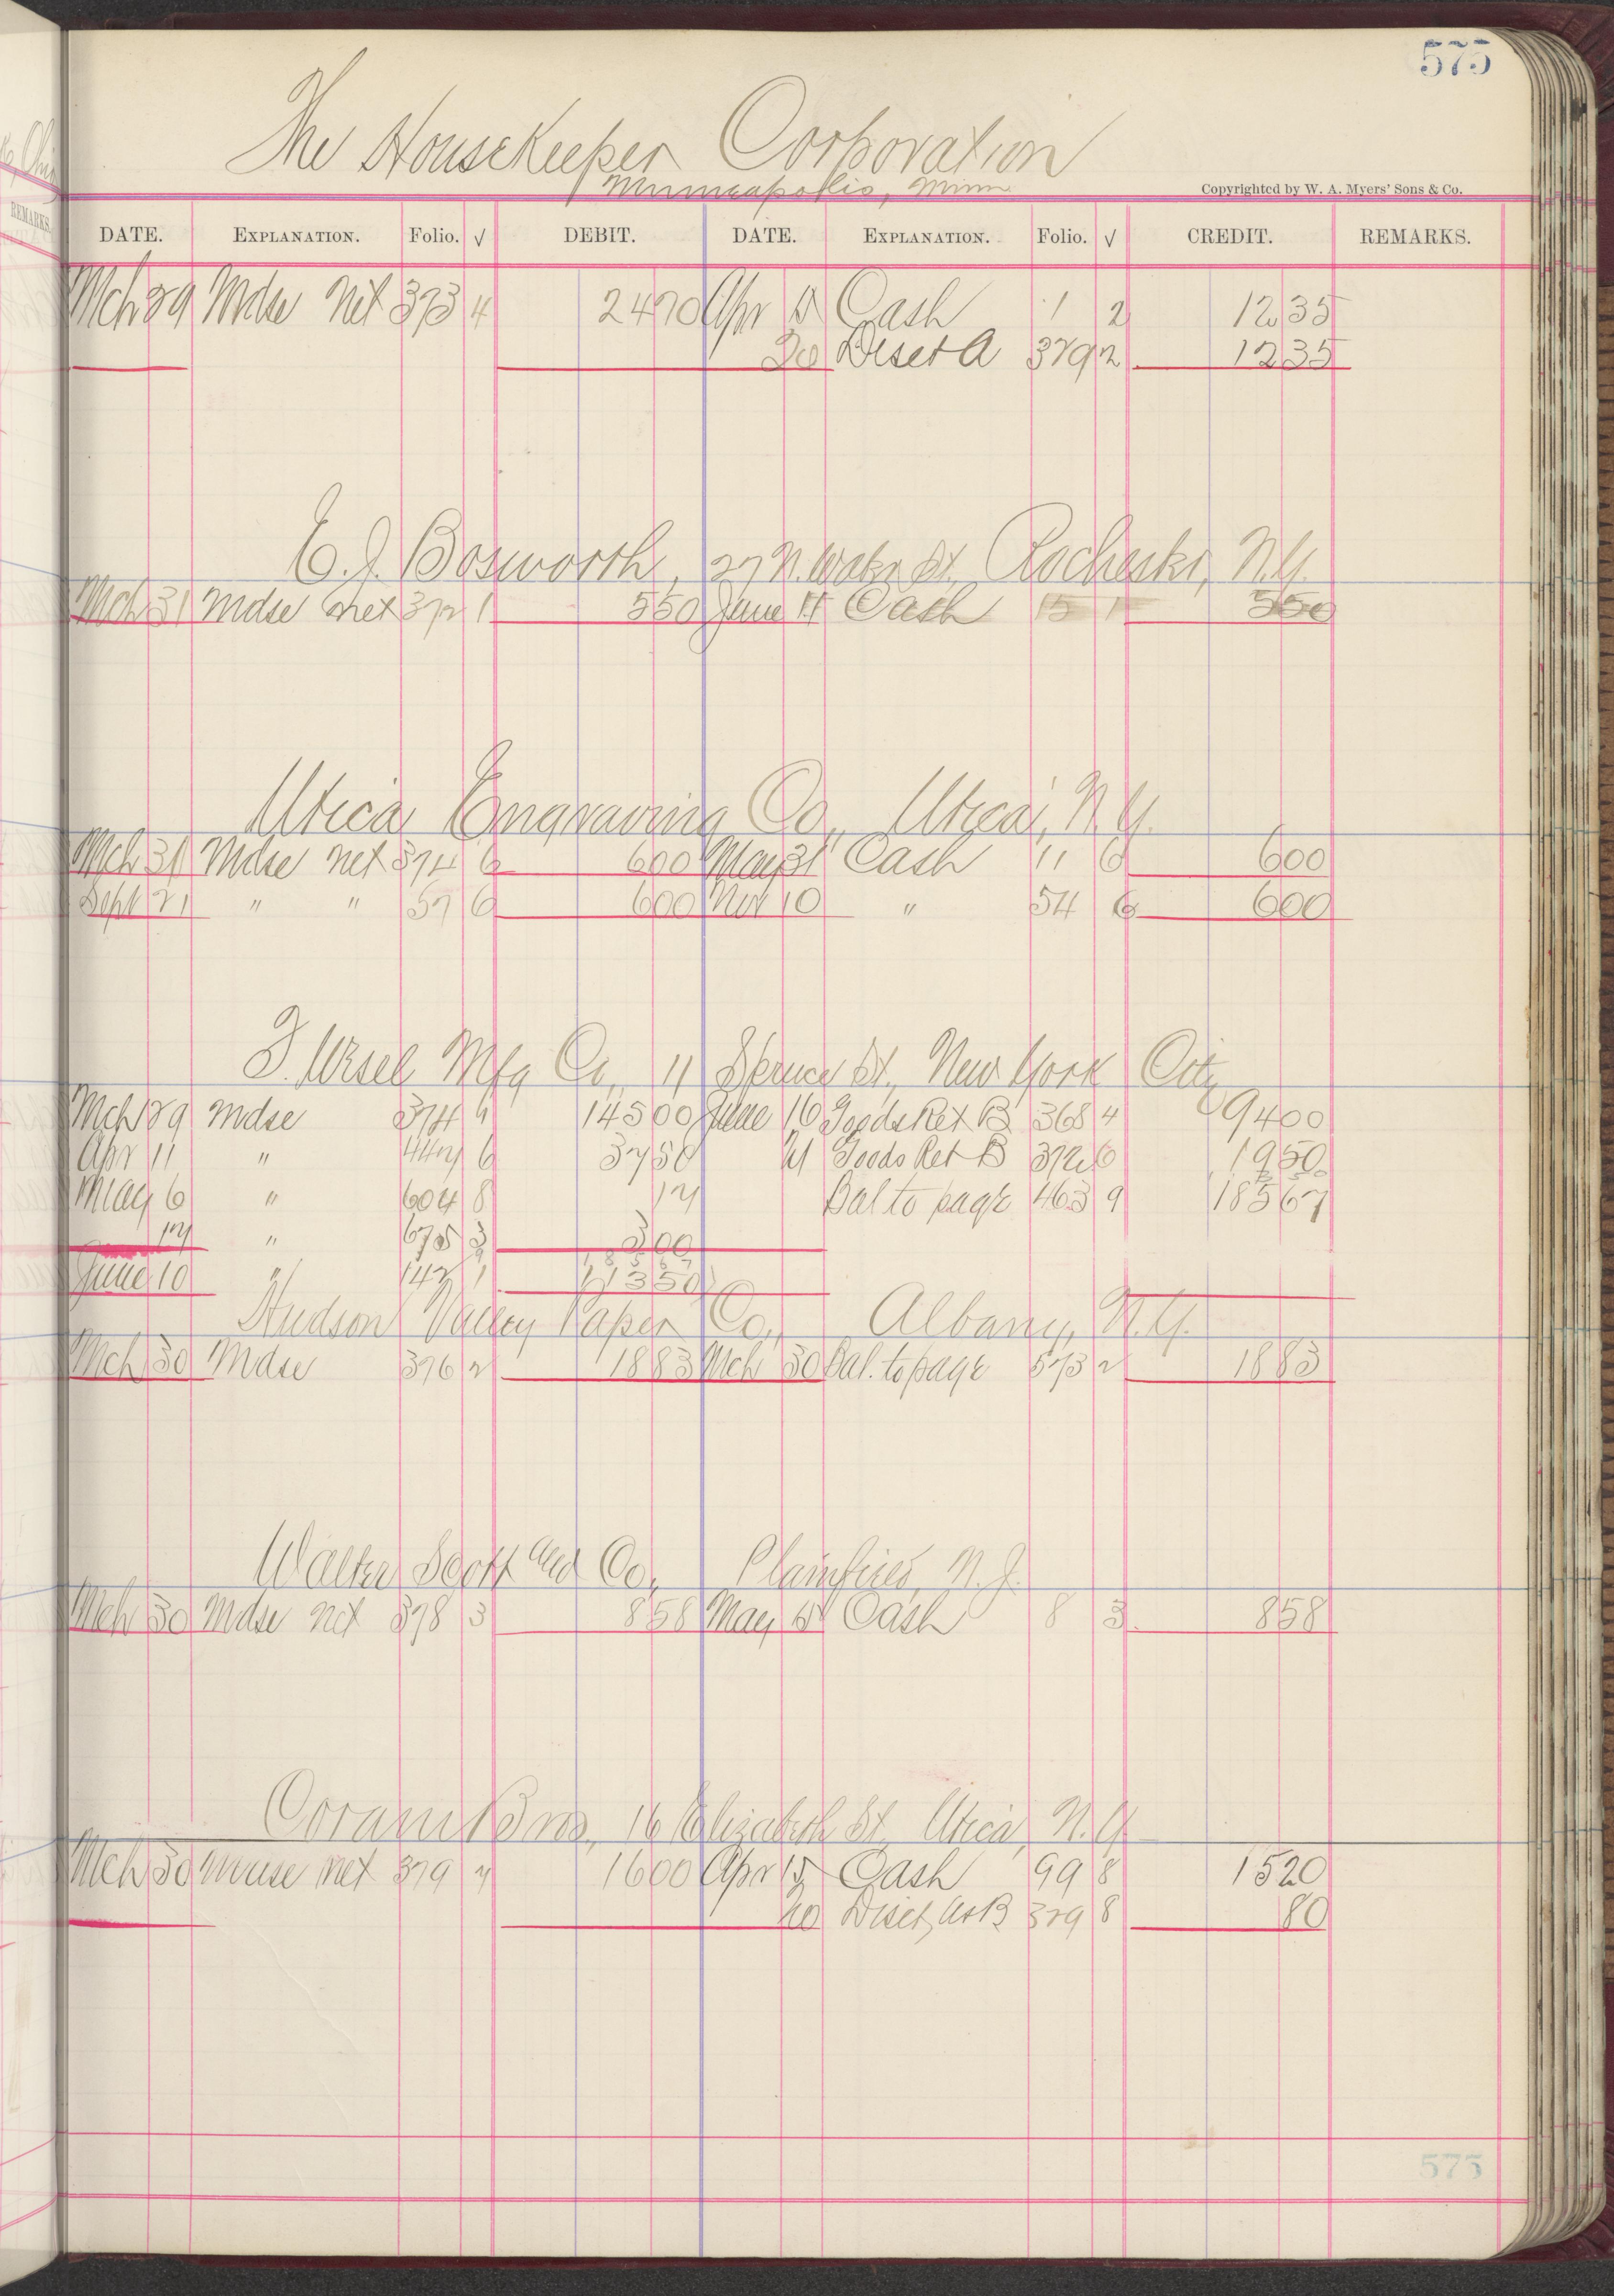 575
The Housekeeper Corporation
Minneapolis, Minn
Copyrighted by W. A. Myers' Sons & Co.
DATE. EXPLANATION. Folio. √ DEBIT. DATE. EXPLANATION. Folio. √ CREDIT. REMARKS.
Mch 29 Mdse net 373 4 2470 Apr Cash 1 2 1235
20 Disct A 379 2 1235
E. J. Bosworth, 27 N. Water St, Rochester, N.Y.
Mch 31 Mdse net 372 1 550 June 11 Cash 15 1 550
Utica Engraving Co., Utica, N.Y.
Mch 31 Mdse net 374 6 600 May 31 Cash 11 6 600
Sept 21 " " 57 6 600 Nov 10 " 54 6 600
F. Wesel Mfg Co, 11 Spruce St., New York City
Mch 29 Mdse 374 4 14500 June 16 Goods Ret B 368 4 9400
Apr 11 " 447 6 3750 21 Goods Ret B 372 6 1950
May 6 " 604 8 17 Bal to page 463 9 18567
17 " 675 3 300
June 10 " 147 1 11350
Hudson Valley Paper Co., Albany, N.Y.
Mch 30 Mdse 376 2 1883 Mch 30 Bal. to page 573 2 1883
Walter Scott and Co, Plainfield, N.J.
Mch 30 Mdse net 378 3 858 May Cash 8 3 858
Coram Bros, 16 Elizabeth St, Utica, N.Y.
Mch 30 Mdse net 379 7 1600 Apr 15 Cash 99 8 1520
20 Disct, B 379 8 80
575
REMARKS.